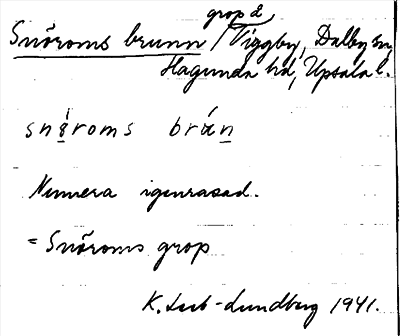 grop ä
Snöroms brunn / Viggby, Dalby sn,
Hagunda hd, Upsala l.
snèroms brán
Numera igenrasad.
= Snöroms grop
K. Leeb-Lundberg 1941.